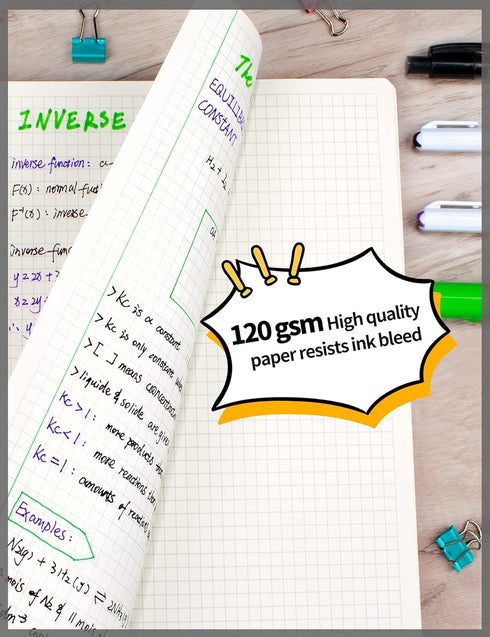 INVERSE
inverse function:
F(x): normal
F⁻¹(x): inverse
inverse
The
EQUILIB
CONSTANT
H₂ + I₂
> Kc is a constant
> Kc is only constant when
> [ ] means concentration
> liquids & solids are given
Kc > 1: more products
Kc < 1: more reactions
Kc = 1: amounts of
Examples:
N₂(g) + 3H₂(g) ⇌ 2NH₃(g)
mols of N₂ & 11 mols
dm⁻³
120 gsm High quality
paper resists ink bleed